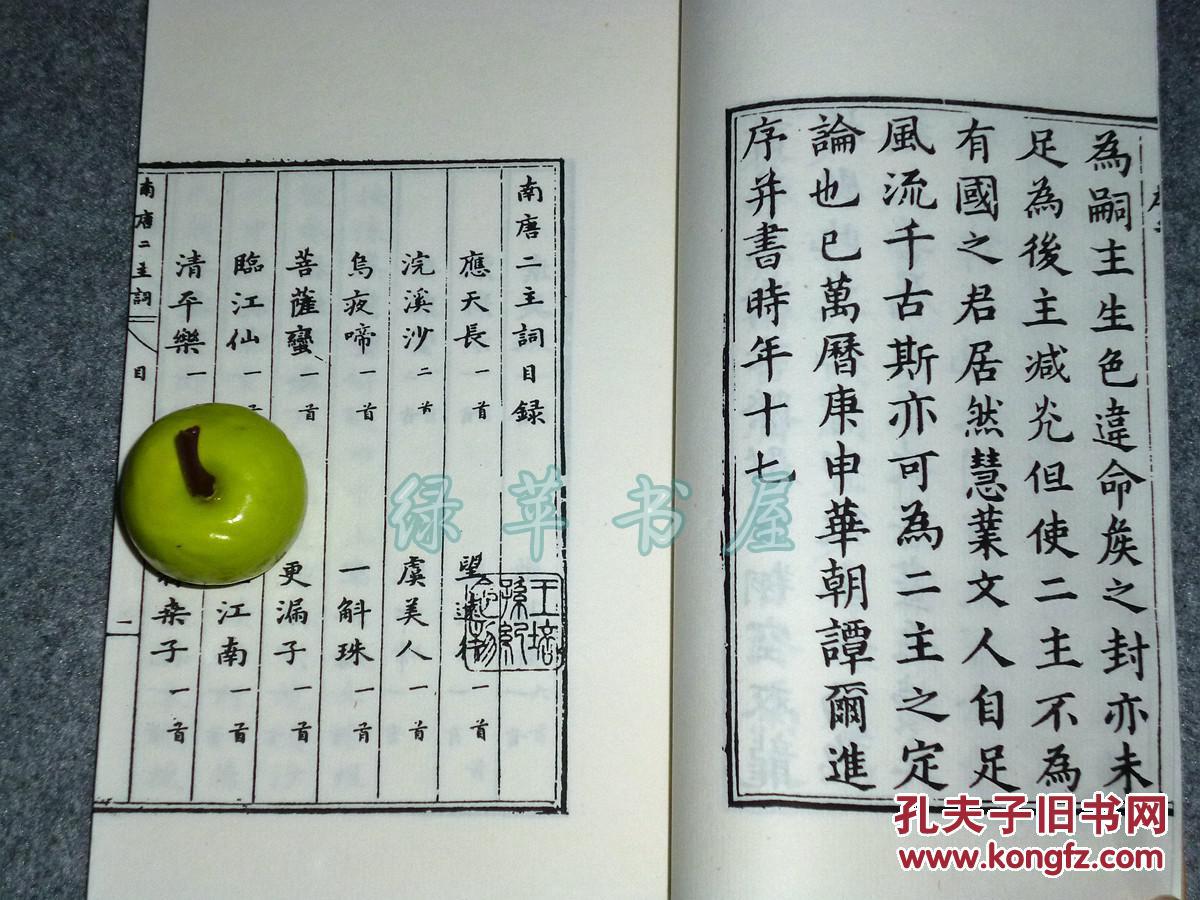 為嗣主生色違命矦之封亦未
足為後主减光但使二主不為
有國之君居然慧業文人自足
風流千古斯亦可為二主之定
論也已萬曆庚申華朝譚爾進
序并書時年十七
南唐二主詞目録
應天長一首
望遠行一首
浣溪沙二首
虞美人一首
烏夜啼一首
一斛珠一首
菩薩蠻一首
更漏子一首
臨江仙一
江南一首
清平樂一
桒子一首
南唐二主詞
目
一
绿苹书屋
孔夫子旧书网
www.kongfz.com